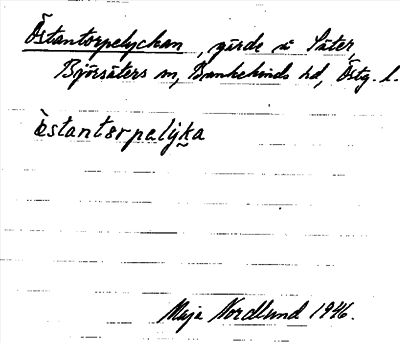 Östantorpelyckan, gärde å Säter,
Björsäters sn, Bankekinds hd, Östg. l.
östantorpalýka
Maja Nordlund 1946.